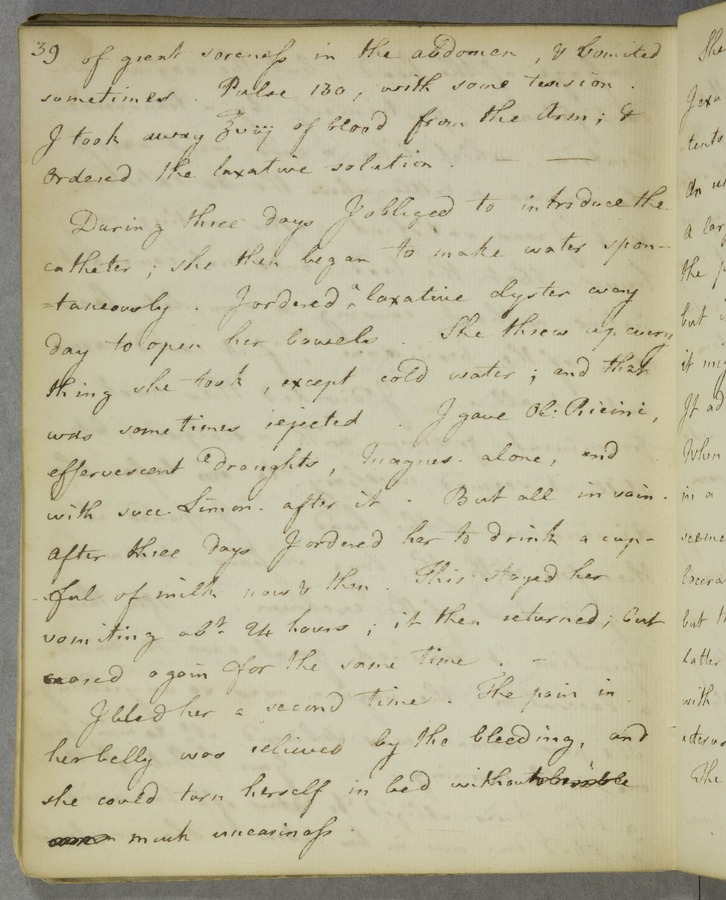 39 of great soreness in the abdomen, & vomited
sometimes. Pulse 130, with some tension.
I took away ℥viij of blood from the Arm; &
ordered the laxative solution. — —
During three days I obliged to introduce the
catheter; she then began to make water spon-
=taneously. I ordered a laxative clyster every
day to open her bowels. She threw up every
thing she took, except cold water; and that
was sometimes rejected. I gave Ol: Ricini,
effervescent draughts, Magnes. alone, and
with succ. Limon. after it. But all in vain.
After three days I ordered her to drink a cup-
-ful of milk now & then. This stayed her
vomiting abt. 24 hours; it then returned; but
ceased again for the same time. -
I bled her a second time. The pain in
her belly was relieved by the bleeding, and
she could turn herself in bed without
much uneasiness.
She
tents
An
a lar
the p
but
it mig
It ad
When
in a
seeme
but
latter
with
The